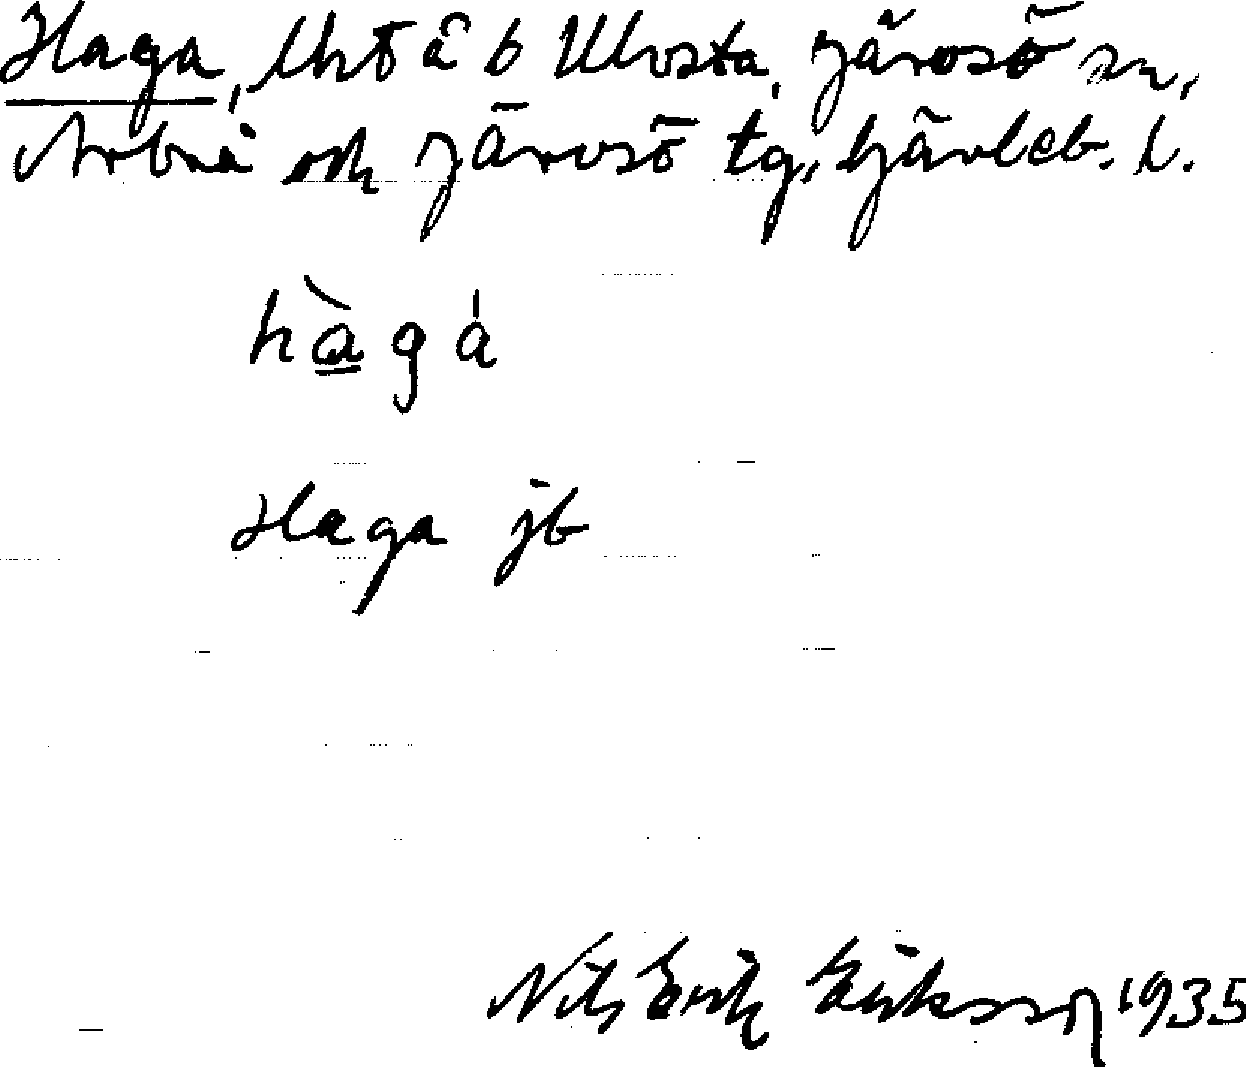 Haga, lht å b Ulvsta, Järvsö sn,
Arbrå och Järvsö tg, Gävleb. l.
hàgá
Haga jb
Nils Erik Eriksson 1935